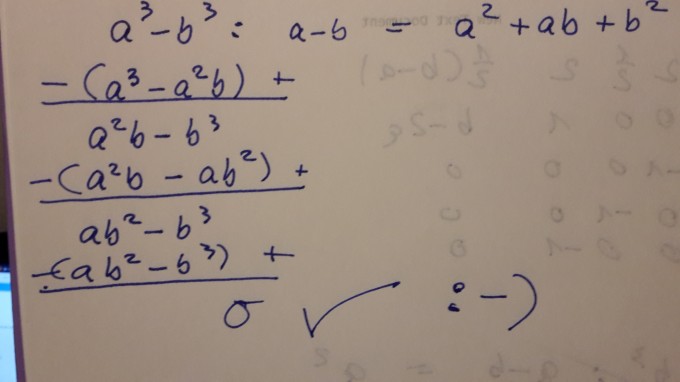 a³-b³ : a-b = a²+ab+b²
-(a³-a²b) +
a²b-b³
-(a²b-ab²) +
ab²-b³
-(ab²-b³) +
0 ✓ :-)